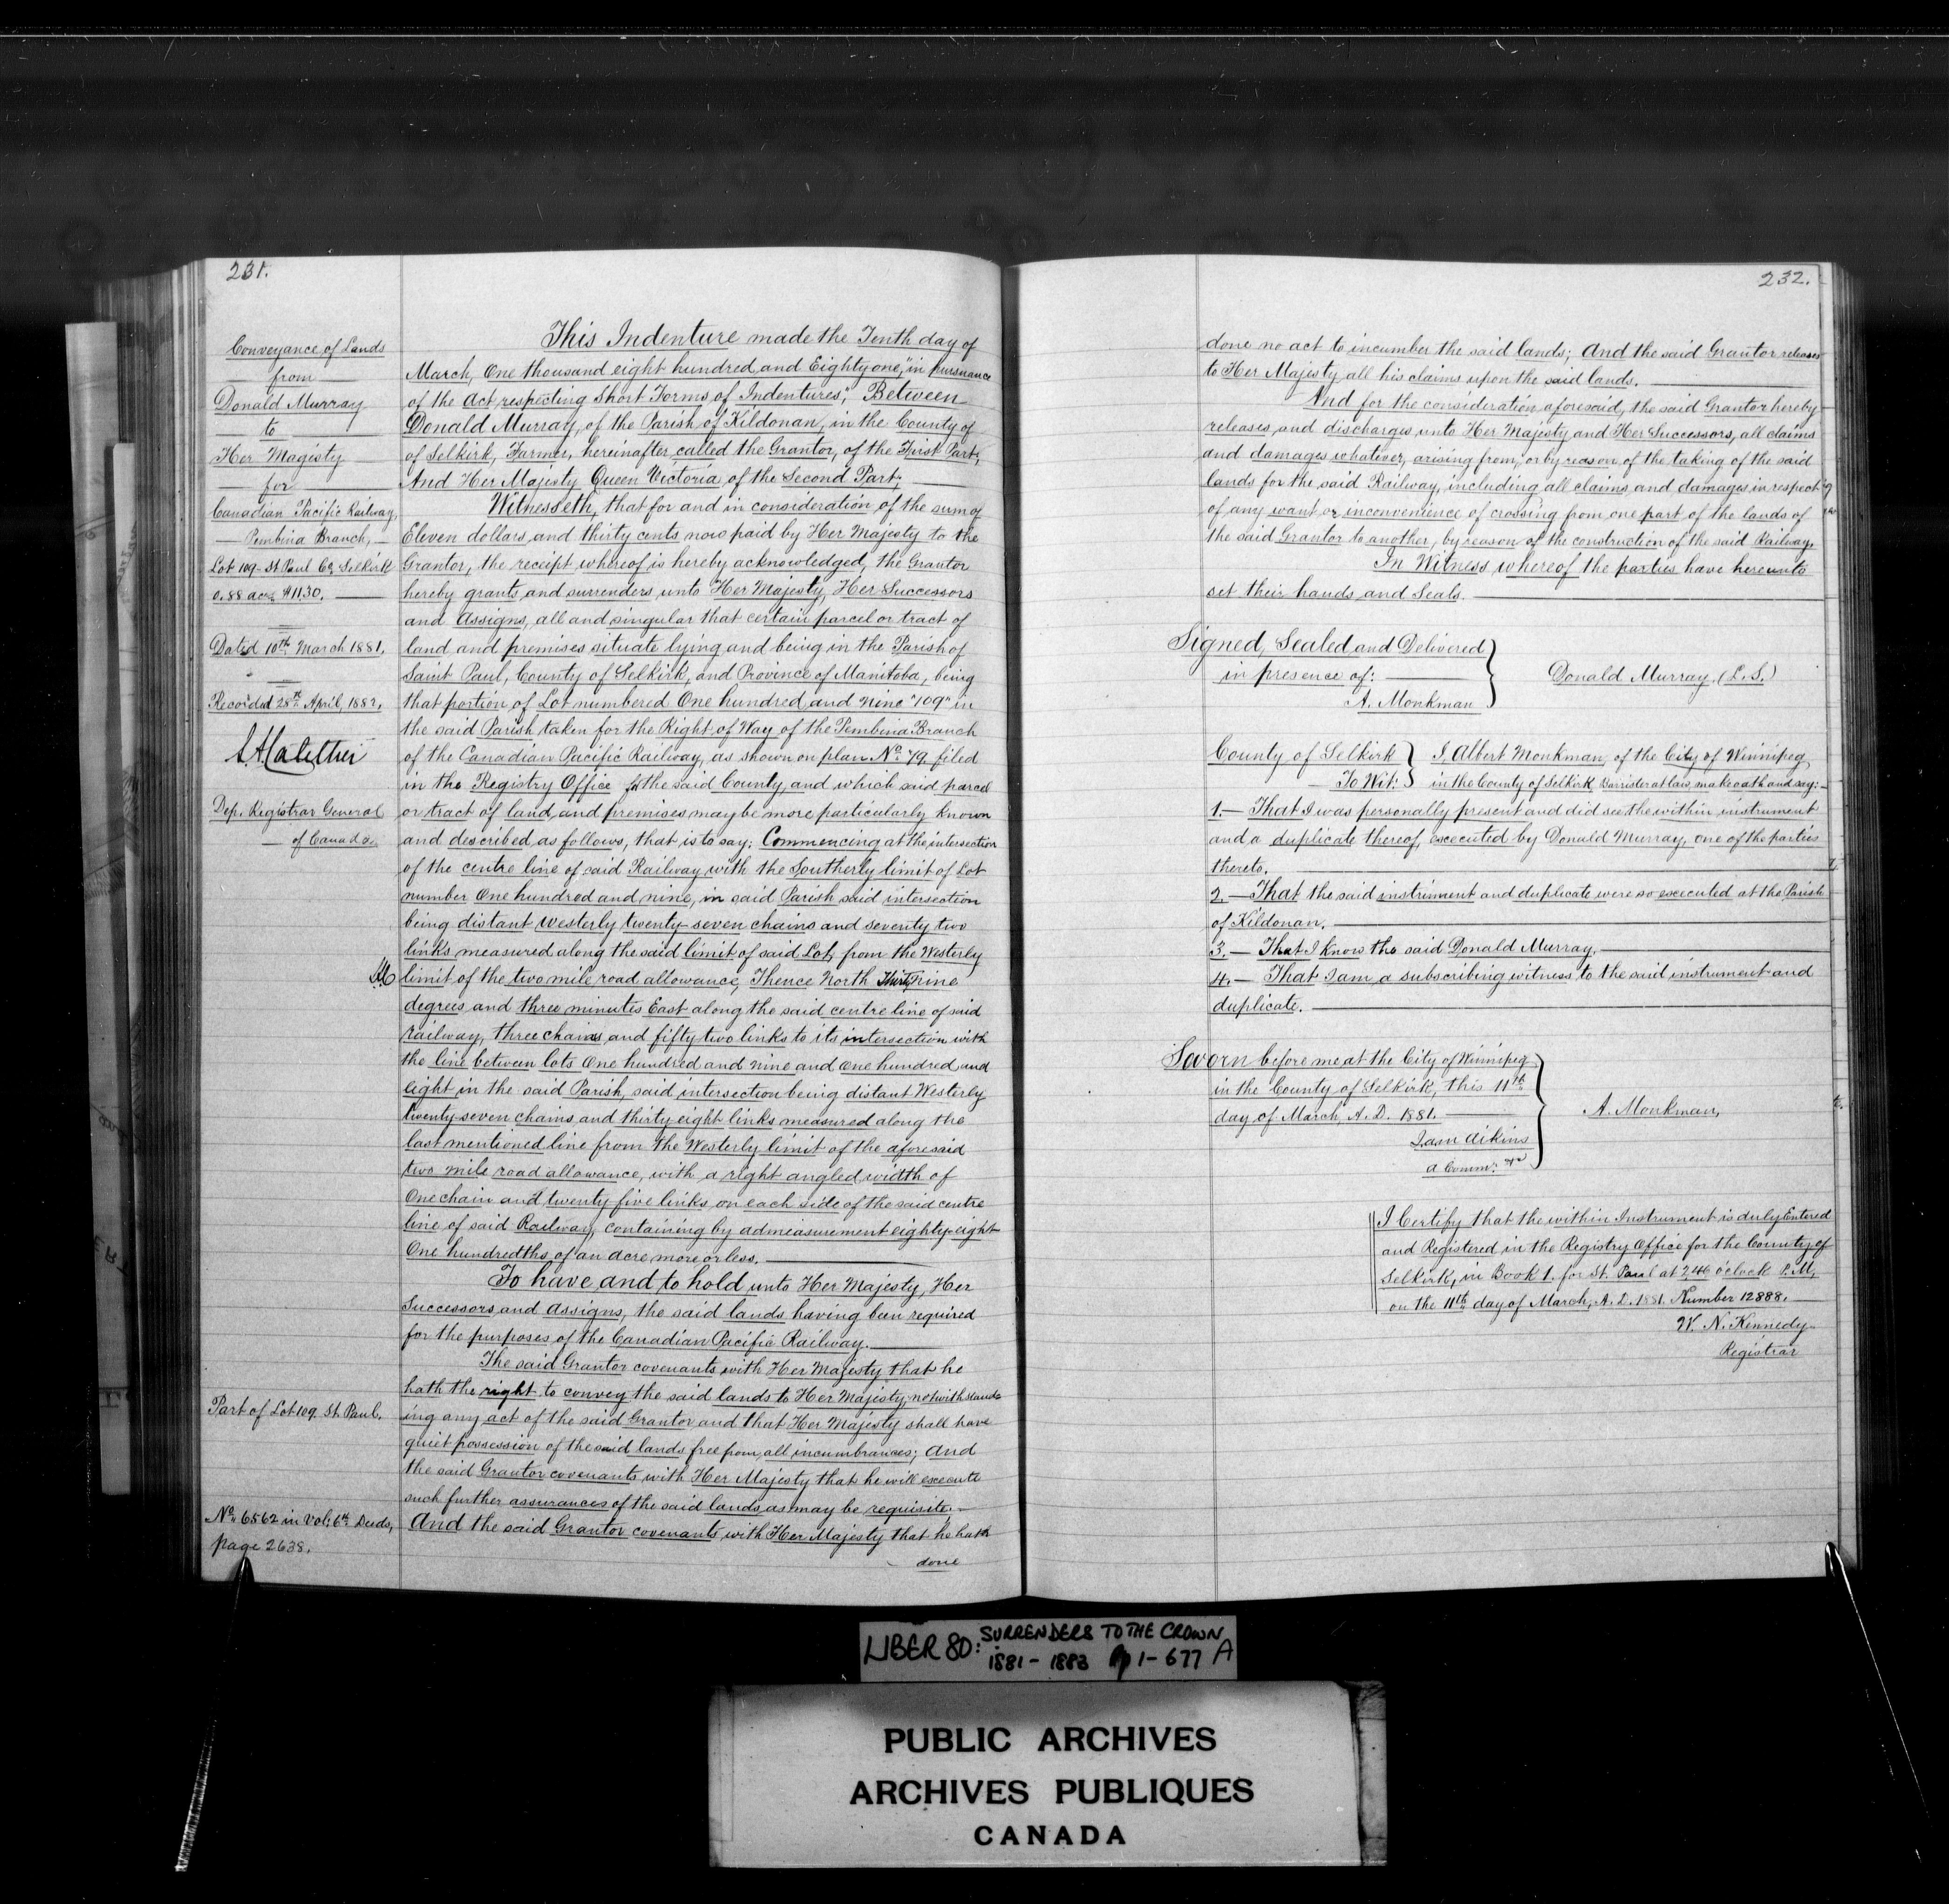 231.
Conveyance of Lands
from
Donald Murray
to
Her Magisty
for
Canadian Pacific Railway,
Pembina Branch,
Lot 109 - St Paul Co. Selkirk
0.88 acs $11.30.
Dated 10th March 1881.
Recorded 28th April, 1882.
Dep. Registrar General
of Canada
Part of Lot 109. St. Paul.
No. 6562 in Vol: 6th Deeds,
page 2638.
This Indenture made the Tenth day of
March, One thousand eight hundred and Eighty one, "in pursuance
of the Act respecting Short Forms of Indentures", Between
Donald Murray, of the Parish of Kildonan, in the County of
of Selkirk, Farmer, hereinafter called the Grantor, of the First Part,
And Her Majesty Queen Victoria of the Second Part;
Witnesseth, that for and in consideration of the sum of
Eleven dollars and thirty cents now paid by Her Majesty to the
Grantor, the receipt whereof is hereby acknowledged, the Grantor
hereby grants and surrenders unto Her Majesty, Her Successors
and Assigns, all and singular that certain parcel or tract of
land and premises situate lying and being in the Parish of
Saint Paul, County of Selkirk, and Province of Manitoba, being
that portion of Lot numbered One hundred and nine "109" in
the said Parish taken for the Right of Way of the Pembina Branch
of the Canadian Pacific Railway, as shown on plan No. 79, filed
in the Registry Office for the said County, and which said parcel
or tract of land and premises may be more particularly known
and described as follows, that is to say; Commencing at the intersection
of the centre line of said Railway with the Southerly limit of Lot
number One hundred and nine, in said Parish said intersection
being distant Westerly twenty-seven chains and seventy two
links measured along the said limit of said Lot, from the Westerly
limit of the two mile road allowance, Thence North Thirty nine
degrees and three minutes East along the said centre line of said
railway, three chains and fifty-two links to its intersection with
the line between lots One hundred and nine and one hundred and
eight in the said Parish, said intersection being distant Westerly
twenty-seven chains and thirty eight links measured along the
last mentioned line from the Westerly limit of the aforesaid
two mile road allowance, with a right angled width of
One chain and twenty five links on each side of the said centre
line of said Railway, containing by admeasurement eighty-eight
One hundredths of an acre more or less.
To have and to hold unto Her Majesty, Her
Successors and Assigns, the said lands having been required
for the purposes of the Canadian Pacific Railway.
The said Grantor covenants with Her Majesty that he
hath the right to convey the said lands to Her Majesty, notwithstand-
ing any act of the said Grantor and that Her Majesty shall have
quiet possession of the said lands free from all incumbrances; And
the said Grantor covenants with Her Majesty that he will execute
such further assurances of the said lands as may be requisite.
And the said Grantor covenants with Her Majesty that he hath
done
232.
done no act to incumber the said lands; And the said Grantor releases
to Her Majesty all his claims upon the said lands.
And for the consideration aforesaid, the said Grantor hereby
releases and discharges unto Her Majesty and Her Successors, all claims
and damages whatever, arising from, or by reason of the taking of the said
lands for the said Railway, including all claims and damages in respect
of any want or inconvenience of crossing from one part of the lands of
the said Grantor to another, by reason of the construction of the said Railway.
In Witness whereof the parties have hereunto
set their hands and Seals.
Signed, Sealed and Delivered
in presence of:
A. Monkman
Donald Murray, (L.S.)
County of Selkirk
To Wit:
I Albert Monkman, of the City of Winnipeg
in the County of Selkirk, Barrister at law, make oath and say:-
1.— That I was personally present and did see the within instrument
and a duplicate thereof, executed by Donald Murray, one of the parties
thereto.
2.— That the said instrument and duplicate were so executed at the Parish
of Kildonan.
3.— That I know the said Donald Murray.
4.— That I am a subscribing witness to the said instrument and
duplicate.
Sworn before me at the City of Winnipeg
in the County of Selkirk, this 11th
day of March, A.D. 1881.
J. am Aikins
a Comm:
A. Monkman,
I Certify that the within Instrument is duly Entered
and Registered in the Registry Office for the County of
Selkirk, in Book 1. for St. Paul at 2,40 o'clock P.M,
on the 11th day of March, A.D. 1881. Number 12888.
W. N. Kennedy
Registrar
LIBER 80: SURRENDERS TO THE CROWN
1881 - 1883 pp 1 - 677 A
PUBLIC ARCHIVES
ARCHIVES PUBLIQUES
CANADA